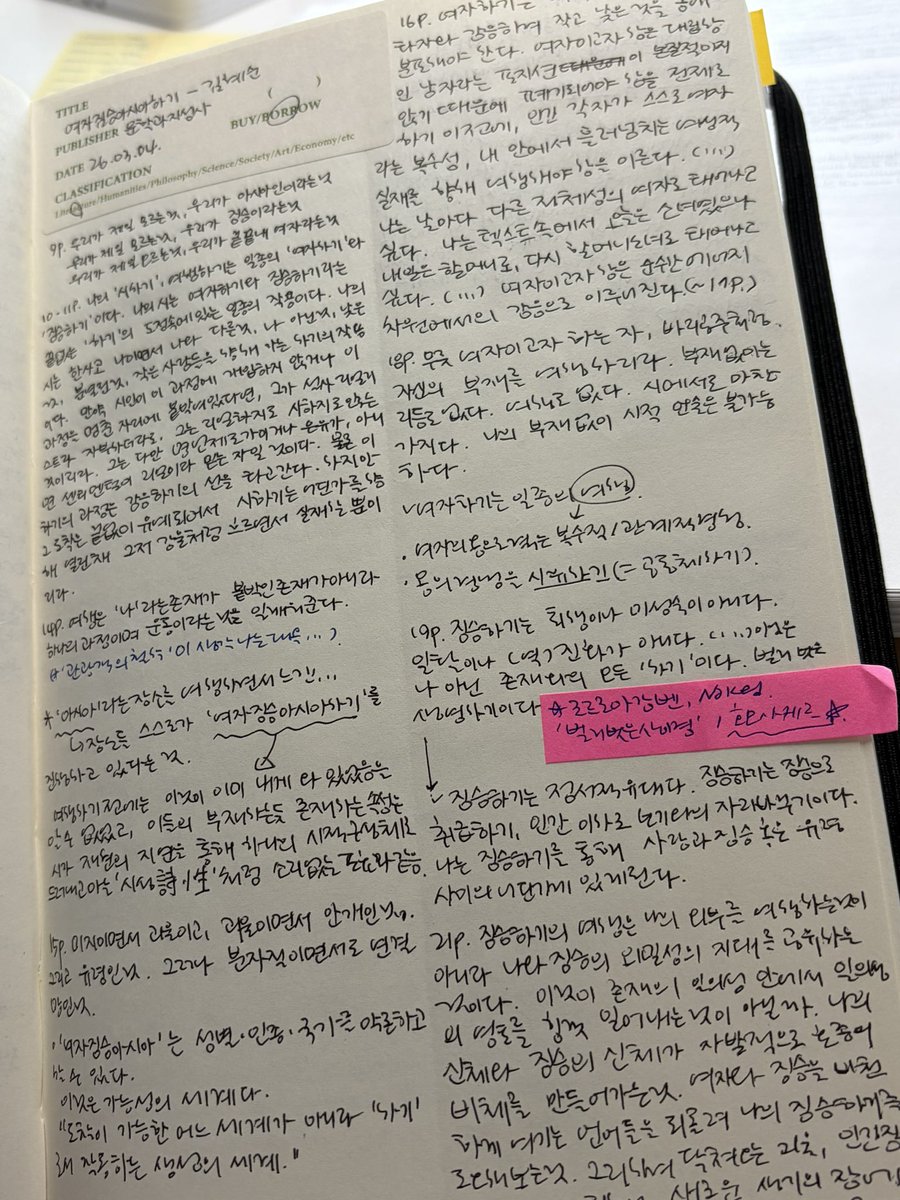 TITLE
여자짐승아시아하기 - 김혜순 ( )
PUBLISHER 문학과지성사 BUY/BORROW
DATE 26.03.04.
CLASSIFICATION
Literature/Humanities/Philosophy/Science/Society/Art/Economy/etc
9p. 우리가 제일 모르는 것, 우리가 아시아인이라는 것
우리가 제일 모르는 것, 우리가 짐승이라는 것
우리가 제일 모르는 것, 우리가 끝끝내 여자라는 것
10-11p. 나의 '시하기', 여행하기는 일종의 '여자하기'와
'짐승하기'이다. 나의 시는 여자하기와 짐승하기라는
'하기'의 도정속에 있는 일종의 작용이다. 나의
시는 한사코 나이면서 나와 다른 것, 나 아닌 것, 낮은
것, 분열된 것, 작은 사람들을 향해 가는 하기의 작용
이다. 만약 시인이 이 과정에 개입하지 않거나 이
과정을 멈춘 자리에 붙박여있다면, 그가 설사 리얼리
스트라 자부하더라도, 그는 리얼하지도 시하지도 않는
것이리라. 그는 다만 면년제로가 이거나 은유가, 아니
면 센티멘트의 과잉이라 믿는 자일 것이다. 물론 이
하기의 과정은 감응하기의 선을 타고 간다. 하지만
그 도착은 끝없이 유예되어서 시하기는 어딘가를 향
해 열린채 그저 강물처럼 흐르면서 실재할 뿐이
리라.
14p. 여행은 '나'라는 존재가 붙박인 존재가 아니라
하나의 과정이며 운동이라는 것을 일깨워준다.
'관광객의 철학'이 생각나는 대목...).
* '아시아'라는 장소를 여행하면서 느낀...
↳ 장소들 스스로가 '여자짐승아시아하기'를
진행하고 있다는 것.
여행하기 전에는 이것이 이미 내게 와 있었음을
알 수 없었고, 이들의 부재하는듯 존재하는 속성은
시가 재현의 지연을 통해 하나의 시적 구성체로
드러내고야 마는 '시성詩性'처럼 소리없는 포효와 같음.
15p. 미지이면서 괴물이고, 괴물이면서 안개인 것.
그리고 유령인 것. 그러나 분자적이면서도 연결
망인 것.
· '여자짐승아시아'는 성별·인종·국가로 약분하고
할 수 있다.
이것은 가능성의 세계다.
"도착이 가능한 어느 세계가 아니라 '하기'
로써 작동하는 생성의 세계."
16p. 여자하기는
타자와 감응하며 작고 낮은 것을 향해
분포해야 한다. 여자이고자 함은 대립항
인 남자라는 포지션이 본질적이지
않기 때문에 폐기되어야 함을 전제로
하기 이전에, 인간 각자가 스스로 여자
라는 복수성, 내 안에서 흘러넘치는 여성적
실재를 향해 여행해야 함을 이른다. (...)
나는 날마다 다른 정체성의 여자로 태어나고
싶다. 나는 텍스트 속에서 오늘은 소녀였으나
내일은 할머니로, 다시 할머니소녀로 태어나고
싶다. (...) 여자이고자 함은 순수한 에너지
차원에서의 감응으로 이루어진다.(~17p.)
18p. 무릇 여자이고자 하는 자, 바리공주처럼.
자신의 부재를 여행하리라. 부재 없이는
리듬도 없다. 여행도 없다. 시에서도 마찬
가지다. 나의 부재 없이 시적 언술은 불가능
하다.
- 여자하기는 일종의 여행
↓
· 여자의 몸으로 겪는 복수적/관계적 변용.
· 몸의 경험을 시하기 (= 공동체하기).
19p. 짐승하기는 퇴행이나 미성숙이 아니다.
일탈이나 (역)진화가 아니다. (...)이것은
나 아닌 존재와의 모든 '하기'이다. 벌거벗은
생명하기이다
* 조르조 아감벤, Naked.
'벌거벗은 생명', 호모 사케르 *.
↓
- 짐승하기는 정서적 유대다. 짐승하기는 짐승으로
취급하기, 인간 이하로 보기와의 자리바꾸기이다.
나는 짐승하기를 통해 사람과 짐승 혹은 유령
사이의 나단계에 있게 된다.
21p. 짐승하기의 여행은 나의 외부를 여행하는 것이
아니라 나와 짐승의 외밀성의 지대를 공유하는
것이다. 이것이 존재의 일의성 안에서 일의성
의 영토를 힘껏 밀어내는 것이 아닐까. 나의
신체와 짐승의 신체가 자발적으로 혼종의
비체를 만들어가는 것. 여자와 짐승을 비천
하게 여기는 언어들을 되돌려 나의 짐승하기를
도모해보는 것. 그리하여 닥쳐오는 괴로, 인간짐
새로운 생기의 장